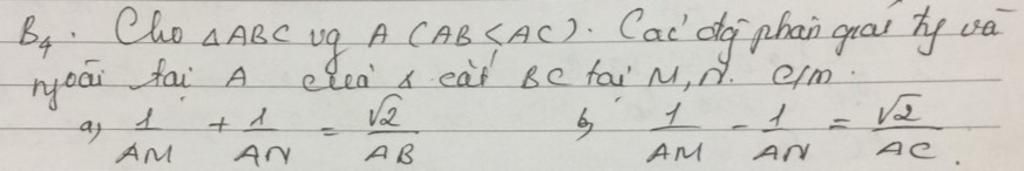 B4. Cho △ABC vg A (AB<AC). Các đg phân giác tg và
ngoài tại A của △ cắt BC tại M, N. C/m.
a) 1/AM + 1/AN = √2/AB b) 1/AM - 1/AN = √2/AC.